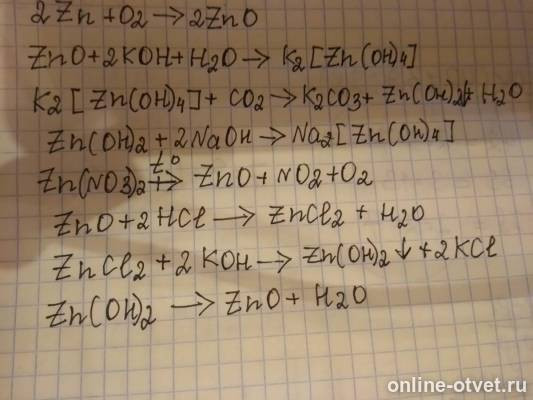 2Zn + O2 → 2ZnO
ZnO + 2KOH + H2O → K2[Zn(OH)4]
K2[Zn(OH)4] + CO2 → K2CO3 + Zn(OH)2↓ + H2O
Zn(OH)2 + 2NaOH → Na2[Zn(OH)4]
t°
Zn(NO3)2 → ZnO + NO2 + O2
ZnO + 2HCl → ZnCl2 + H2O
ZnCl2 + 2KOH → Zn(OH)2↓ + 2KCl
Zn(OH)2 → ZnO + H2O
online-otvet.ru